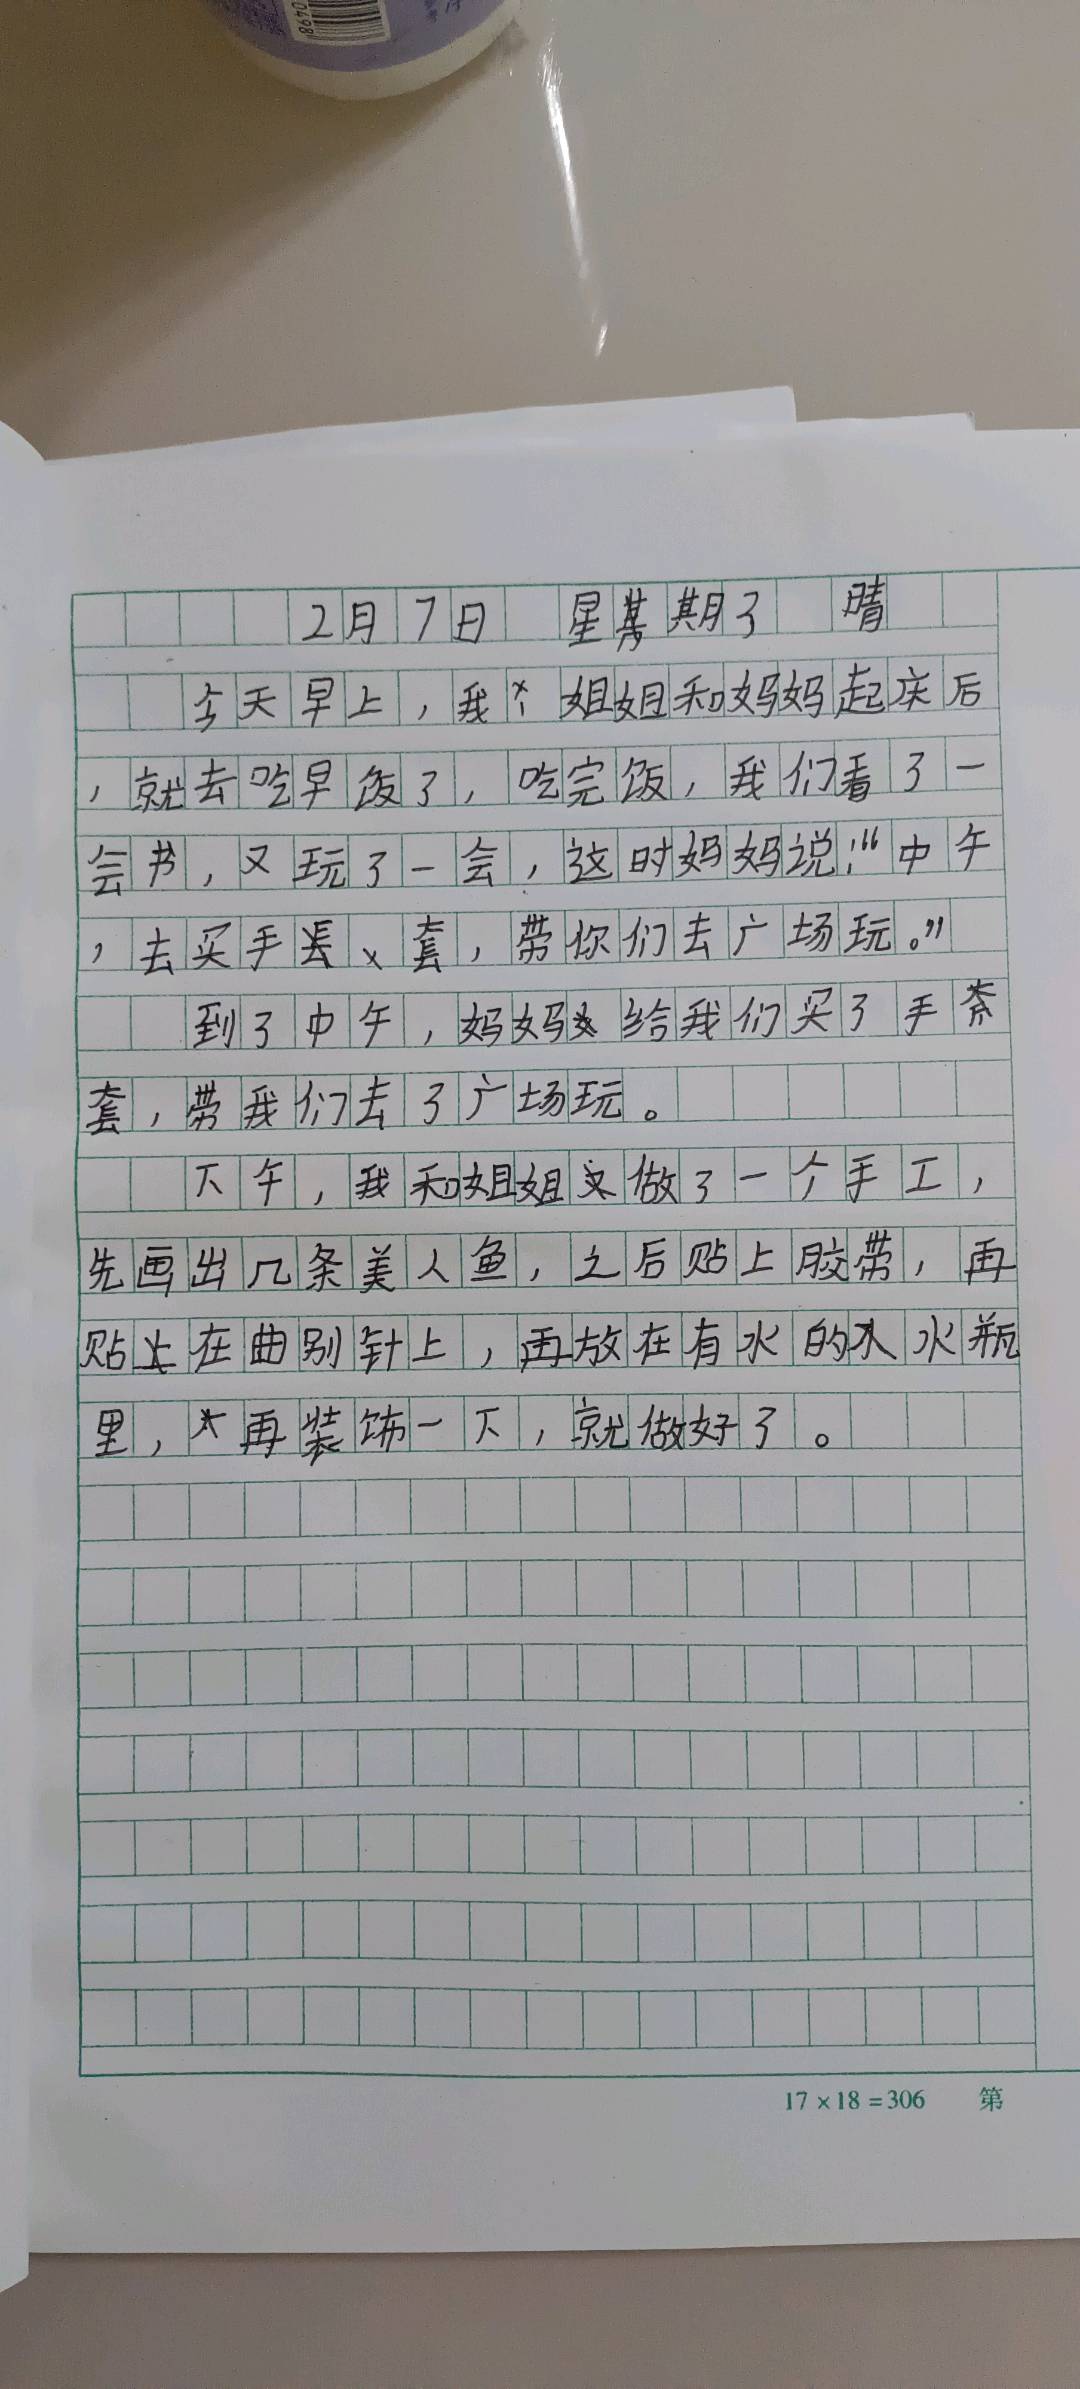 0498
2月7日 星期3 晴
今天早上，我 姐姐和妈妈起床后
，就去吃早饭了，吃完饭，我们看了一
会书，又玩了一会，这时妈妈说：“中午
，去买手 套，带你们去广场玩。”
到了中午，妈妈 给我们买了手
套，带我们去了广场玩。
下午，我和姐姐 做了一个手工，
先画出几条美人鱼，之后贴上胶带，再
贴 在曲别针上，再放在有水的 水瓶
里，再装饰一下，就做好了。
17×18=306 第